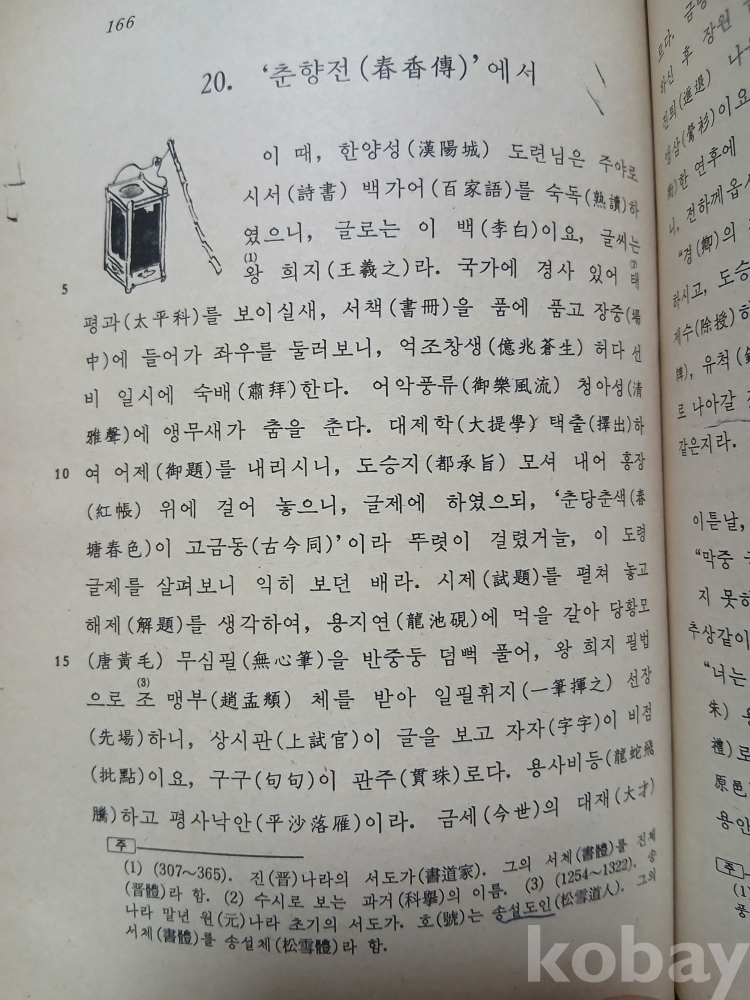 166
20. ‘춘향전(春香傳)’에서
이 때, 한양성(漢陽城) 도련님은 주야로
시서(詩書) 백가어(百家語)를 숙독(熟讀)하
였으니, 글로는 이 백(李白)이요, 글씨는
(1) (2)
왕 희지(王羲之)라. 국가에 경사 있어 태
5
평과(太平科)를 보이실새, 서책(書冊)을 품에 품고 장중(場
中)에 들어가 좌우를 둘러보니, 억조창생(億兆蒼生) 허다 선
비 일시에 숙배(肅拜)한다. 어악풍류(御樂風流) 청아성(清
雅聲)에 앵무새가 춤을 춘다. 대제학(大提學) 택출(擇出)하
10 여 어제(御題)를 내리시니, 도승지(都承旨) 모셔 내어 홍장
(紅帳) 위에 걸어 놓으니, 글제에 하였으되, ‘춘당춘색(春
塘春色)이 고금동(古今同)’이라 뚜렷이 걸렸거늘, 이 도령
글제를 살펴보니 익히 보던 배라. 시제(試題)를 펼쳐 놓고
해제(解題)를 생각하여, 용지연(龍池硯)에 먹을 갈아 당황모
15 (唐黃毛) 무심필(無心筆)을 반중둥 덤뻑 풀어, 왕 희지 필법
(3)
으로 조 맹부(趙孟頫) 체를 받아 일필휘지(一筆揮之) 선장
(先場)하니, 상시관(上試官)이 글을 보고 자자(字字)이 비점
(批點)이요, 구구(句句)이 관주(貫珠)로다. 용사비등(龍蛇飛
騰)하고 평사낙안(平沙落雁)이라. 금세(今世)의 대재(大才)
주
(1) (307~365). 진(晋)나라의 서도가(書道家). 그의 서체(書體)를 진체
(晋體)라 함. (2) 수시로 보는 과거(科擧)의 이름. (3) (1254~1322). 송
나라 말년 원(元)나라 초기의 서도가. 호(號)는 송설도인(松雪道人). 그의
서체(書體)를 송설체(松雪體)라 함.
로다. 금방
하신 후 장원
진퇴(進退) 나
앵삼(鶯衫)이요
한 연후에
니, 전하께옵서
“경(卿)의
하시고, 도승
제수(除授)하
유척
로 나아갈
같은지라.
이튿날,
“막중
지 못하
추상같이
“너는
朱)
禮)로
原邑
용안
주
(1)
풍
kobay